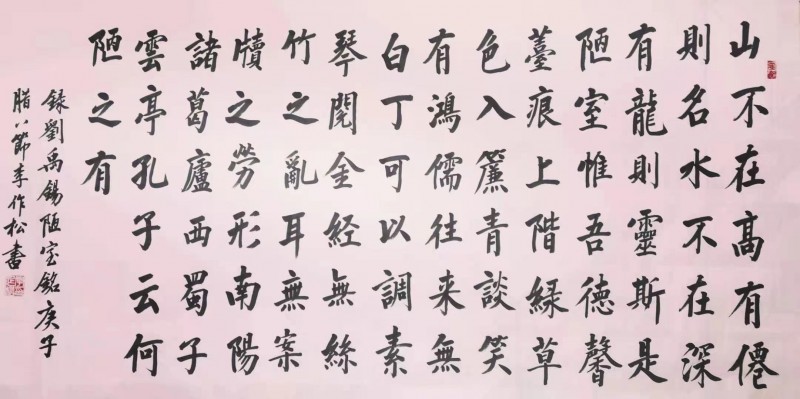 山不在高有僊
則名水不在深
有龍則靈斯是
陋室惟吾德馨
薹痕上階緑草
色入簾青談笑
有鴻儒往来無
白丁可以調素
琴閱金経無絲
竹之亂耳無案
牘之勞形南陽
諸葛廬西蜀子
雲亭孔子云何
陋之有
録劉禹錫陋室銘庚子
腊八節李作松書